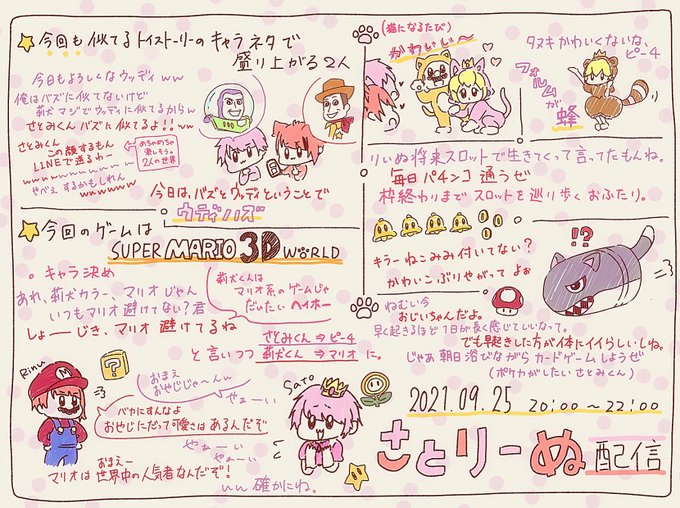 今回も似てるトイストーリーのキャラネタで
盛り上がる2人
今日もよろしくなウッディww
俺はバズに似てないけど
莉犬マジでウッディに似てるからん
さとみくんバズに似てるよ!!ww
さとみくん
この顔するもん
LINEで送るわー
wwwwwwwwww
やべぇするかもしれん
wwwwww
めちゃめちゃ
楽しそう。
2人の世界
今日は、バズとウッディということで
ウディバズ
今回のゲームは
SUPER MARIO 3D WORLD
キャラ決め
あれ、莉犬カラー、マリオじゃん
いつもマリオ避けてない?君
しょーじき、マリオ避けてるね
莉犬くんは
マリオ系のゲームじゃ
だいたいヘイホー
と言いつつ
さとみくん⇒ピーチ
莉犬くん⇒マリオ に。
Rinu
?
M
おまえ
おやじじゃーんw
バカにすんなよ
おやじにだって可愛さはあるんだぞ
やぁーい
やぁーい
やぁーい
おまえー
マリオは世界中の人気者なんだぞ!
いい 確かにね。
Sato
(猫になるたび)
かわいい〜
タヌキかわいくないな、
ピーチ
フォルムが
蜂
りいぬ将来スロットで生きてくって言ってたもんね。
毎日パチンコ通うぜ
枠終わりまでスロットを巡り歩くおふたり。
キラーねこみみ付いてない?
かわいこぶりやがってよぉ
!?
ねむい今
おじいちゃんだよ。
早く起きるほど1日が長く感じていいなって。
でも早起きした方が体にイイらしいしね。
じゃあ朝日浴びながらカードゲームしようぜ
(ポケカがしたいさとみくん)
2021.09.25 20:00〜22:00
さとりーぬ 配信